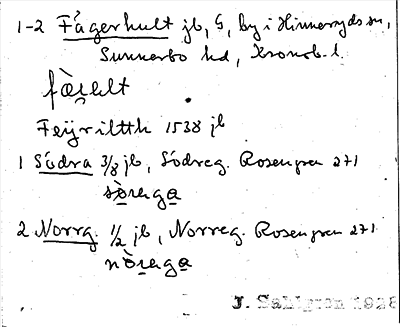 1-2 Fågerhult jb, G, by i Hinneryds sn,
Sunnerbo hd, Kronob. l.
fàgelt
Feyrilttk 1538 jb
1 Södra 3/8 jb, Södreg. Rosengren 271
sörega
2 Norrg. 1/2 jb, Norreg. Rosengren 271
nòrega
J. Sahlgren 1928